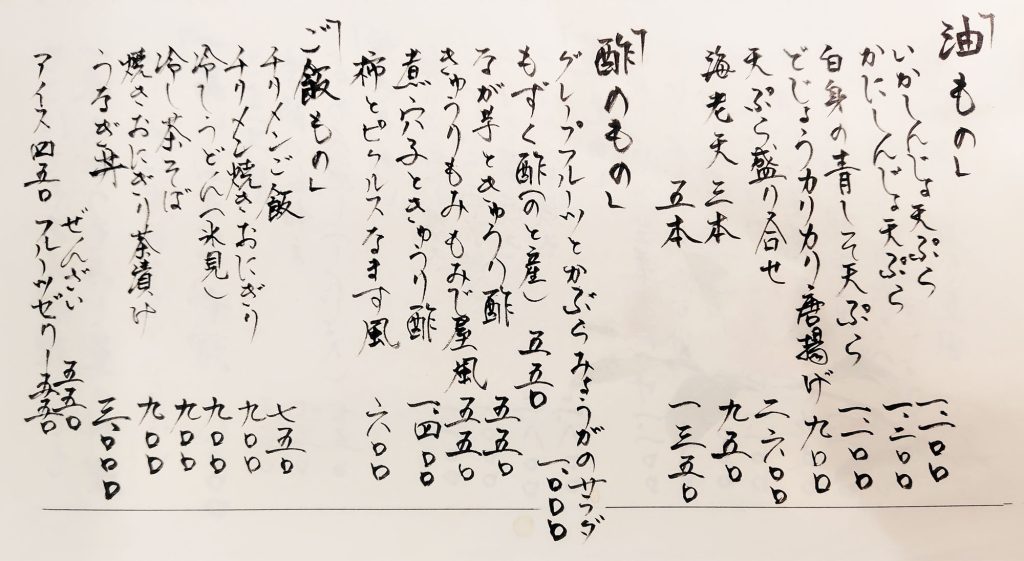 「油もの」
いかしんじょ天ぷら 一、一〇〇
かにしんじょ天ぷら 一、二〇〇
白身の青しそ天ぷら 一、一〇〇
どじょうカリカリ唐揚げ 九〇〇
天ぷら盛り合せ 二、六〇〇
海老天 三本 九五〇
五本 一三五〇
「酢のもの」
グレープフルーツとかぶらみょうがのサラダ 一、〇〇〇
もずく酢(のと産) 五五〇
なが芋ときゅうり酢 五五〇
きゅうりもみ もみぢ屋風 五五〇
煮穴子ときゅうり酢 一、四〇〇
柿とピクルスなます風 六〇〇
「ご飯もの」
チリメンご飯 七五〇
チリメン焼きおにぎり 九〇〇
冷しうどん(氷見) 九〇〇
冷し茶そば 九〇〇
焼きおにぎり茶漬け 九〇〇
うなぎ丼 三、〇〇〇
ぜんざい 五五〇
アイス四五〇 フルーツゼリー 五五〇